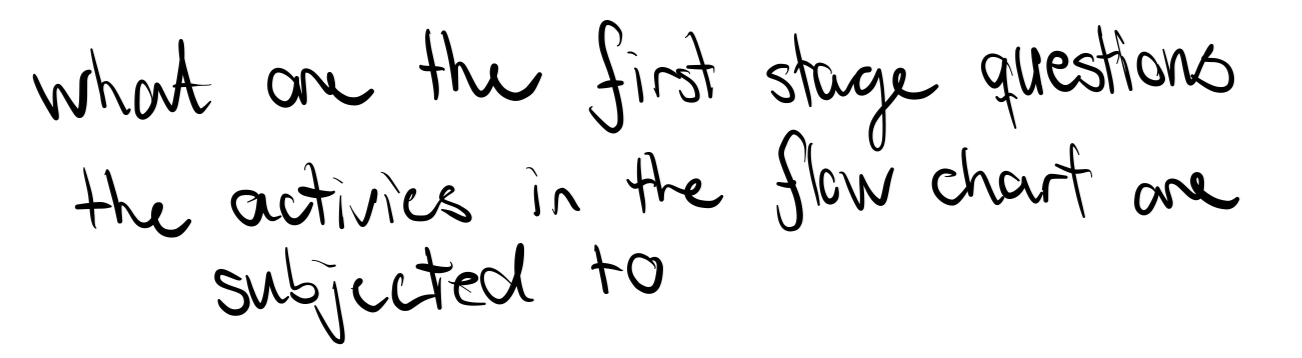 what are the first stage questions
the activies in the flow chart are
subjected to